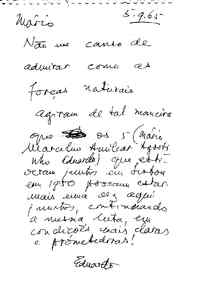 5-9.65
Mário
Não me canso de
admirar como as
forças naturais
agiram de tal maneira
que os 5 (Mário
Marcelino Amilcar Agosti
nho Eduardo) que esti
veram juntos em Lisboa
em 1950 possam estar
mais uma vez aqui
juntos, continuando
a mesma luta, em
condições mais claras
e prometedoras!
Eduardo